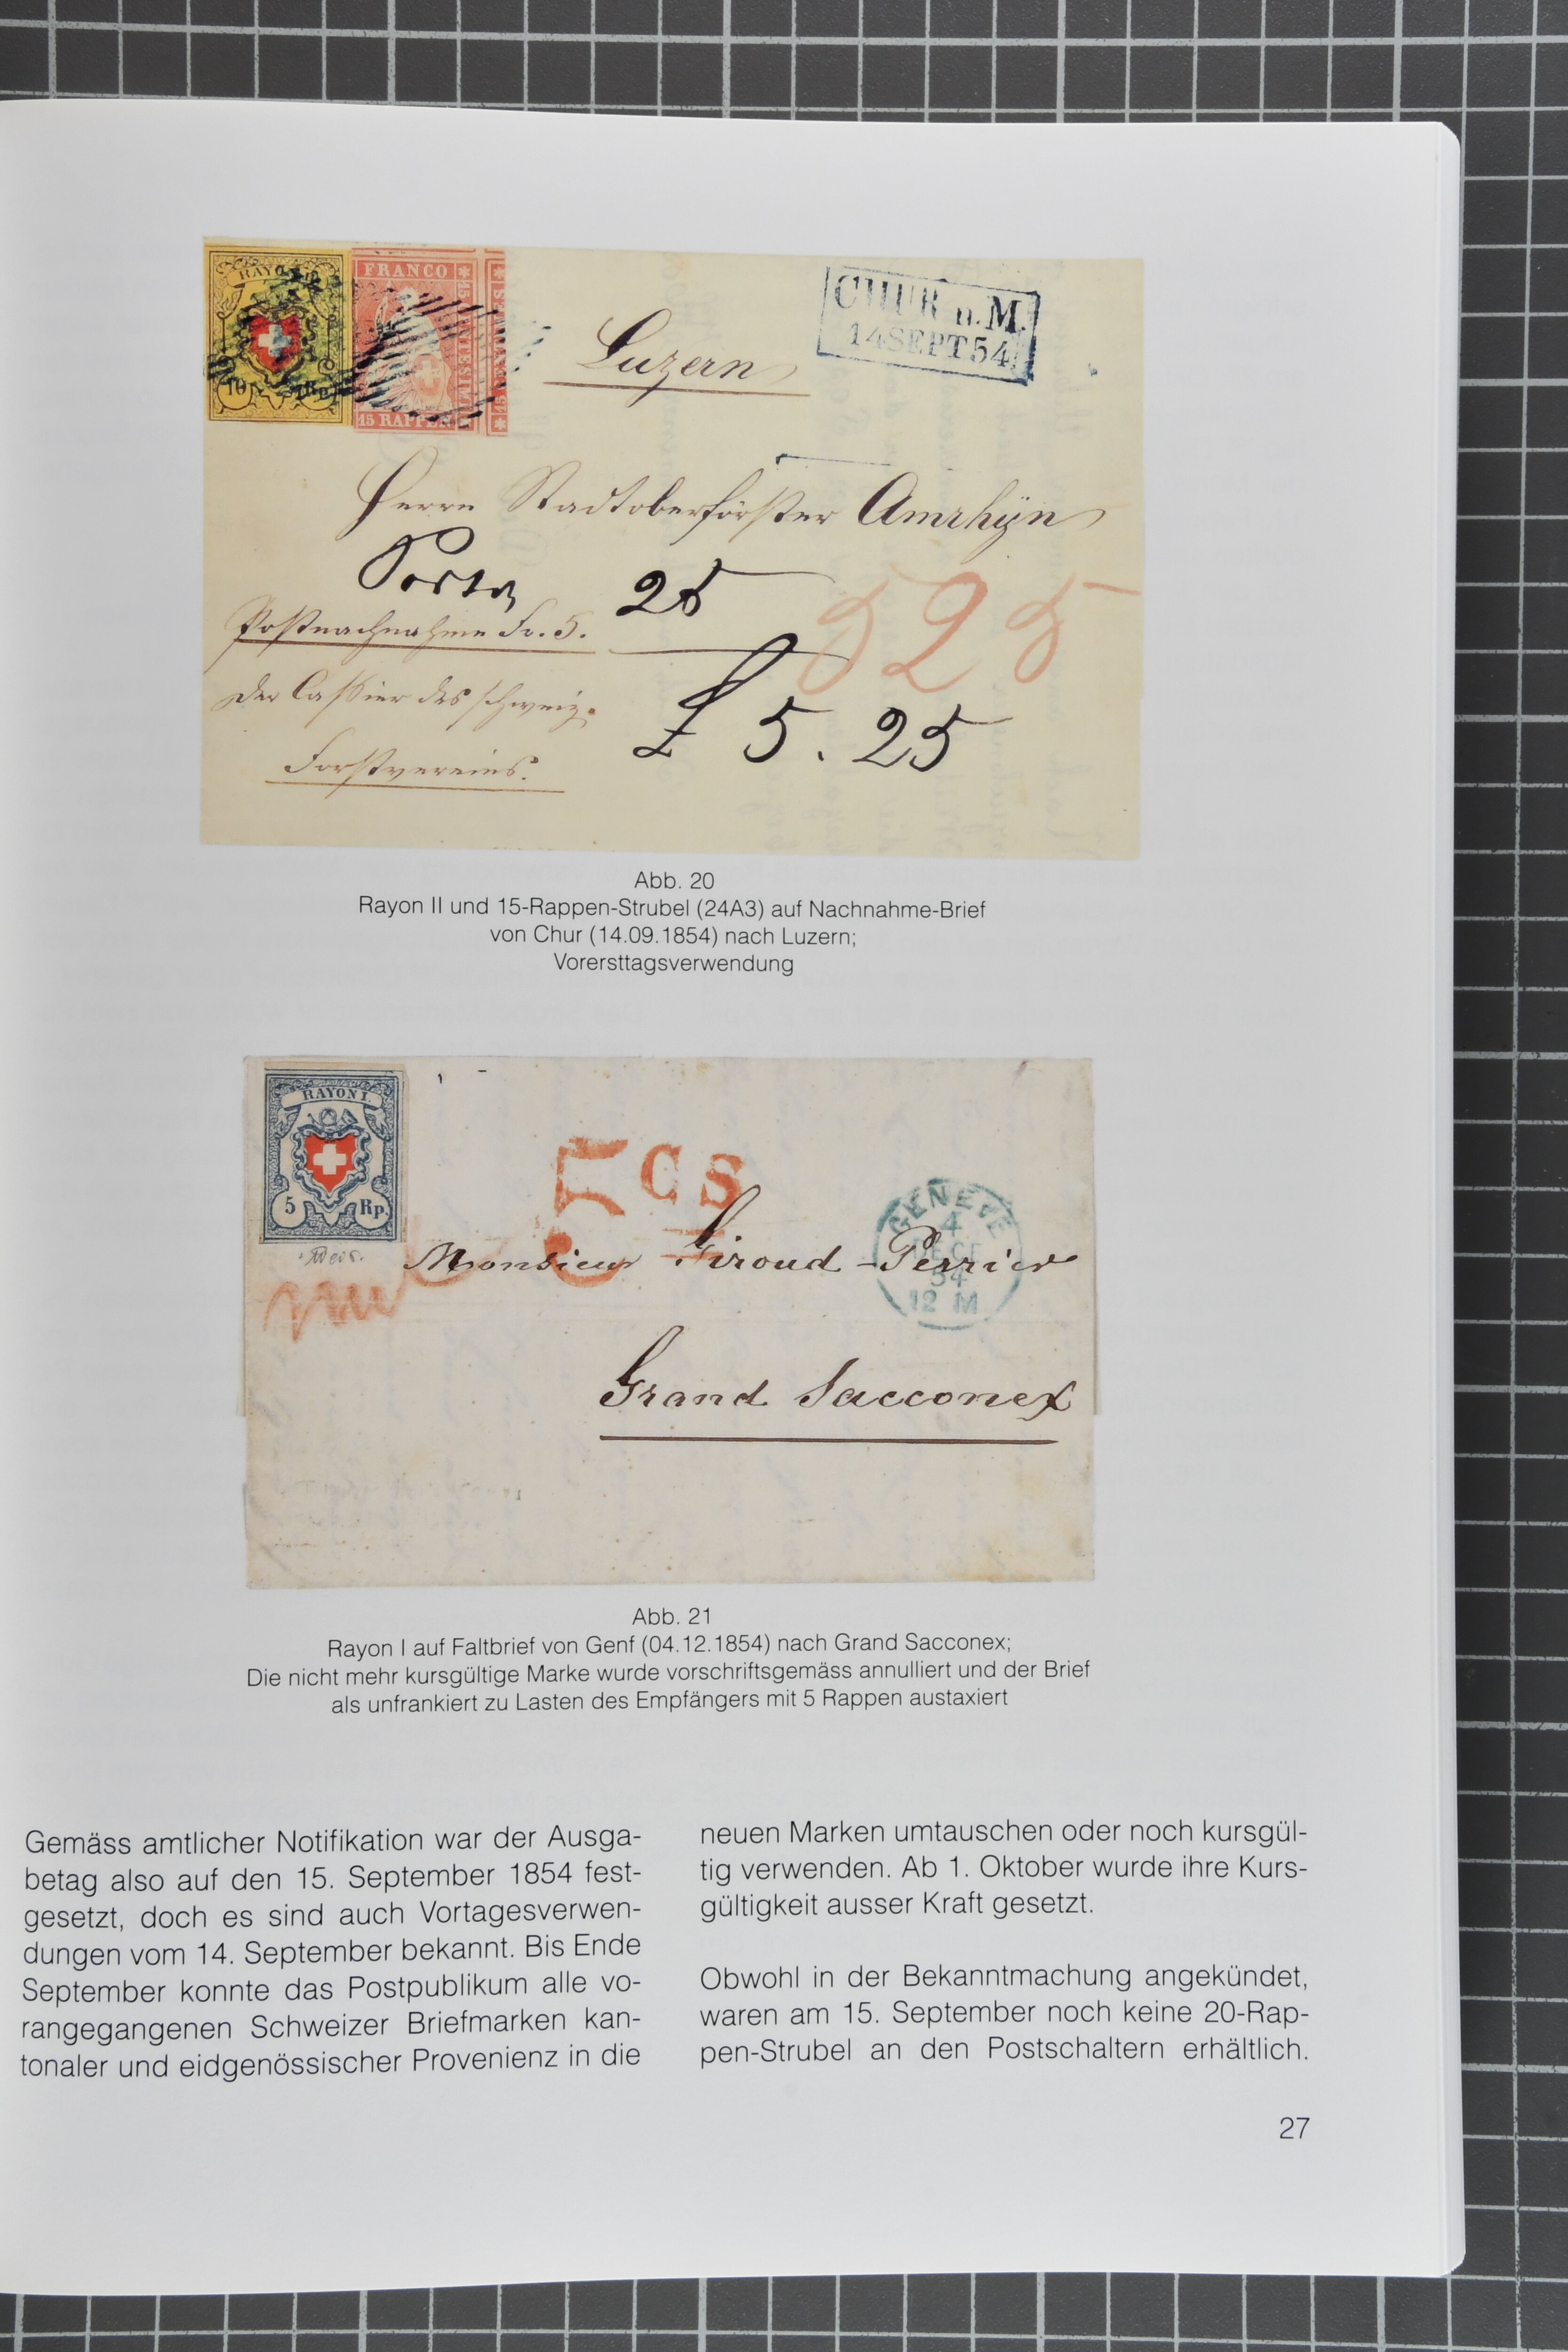 RAYON II
10 Rp.
FRANCO
15 RAPPEN
Luzern
CHUR n.M.
14 SEPT 54
Herrn Stadtoberförster Amrhÿn
Porto 25
525
Postnachnahme Fr. 5.
der Cassier des schweiz.
Forstvereins.
5.25
Abb. 20
Rayon II und 15-Rappen-Strubel (24A3) auf Nachnahme-Brief
von Chur (14.09.1854) nach Luzern;
Vorersttagsverwendung
RAYON I.
5 Rp.
5 CS
GENEVE
4
DECE
54
12 M
Monsieur Giroud-Perrier
Grand Sacconex
Abb. 21
Rayon I auf Faltbrief von Genf (04.12.1854) nach Grand Sacconex;
Die nicht mehr kursgültige Marke wurde vorschriftsgemäss annulliert und der Brief
als unfrankiert zu Lasten des Empfängers mit 5 Rappen austaxiert
Gemäss amtlicher Notifikation war der Ausga-
betag also auf den 15. September 1854 fest-
gesetzt, doch es sind auch Vortagesverwen-
dungen vom 14. September bekannt. Bis Ende
September konnte das Postpublikum alle vo-
rangegangenen Schweizer Briefmarken kan-
tonaler und eidgenössischer Provenienz in die
neuen Marken umtauschen oder noch kursgül-
tig verwenden. Ab 1. Oktober wurde ihre Kurs-
gültigkeit ausser Kraft gesetzt.
Obwohl in der Bekanntmachung angekündet,
waren am 15. September noch keine 20-Rap-
pen-Strubel an den Postschaltern erhältlich.
27